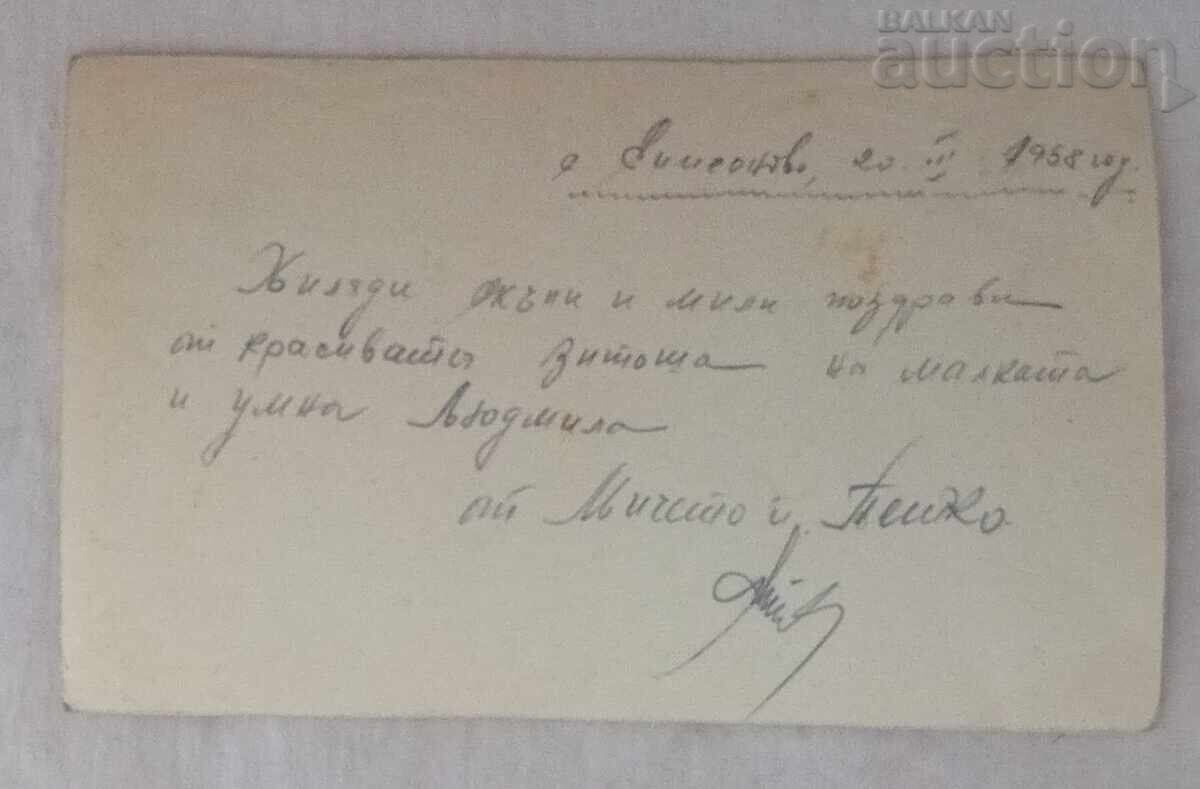 BALKAN
auction
с Симеоново, 20. III 1958 год.
Хиляди скъпи и мили поздрави
от красивата Витоша на малката
и умна Людмила
от Мичето и Пенко